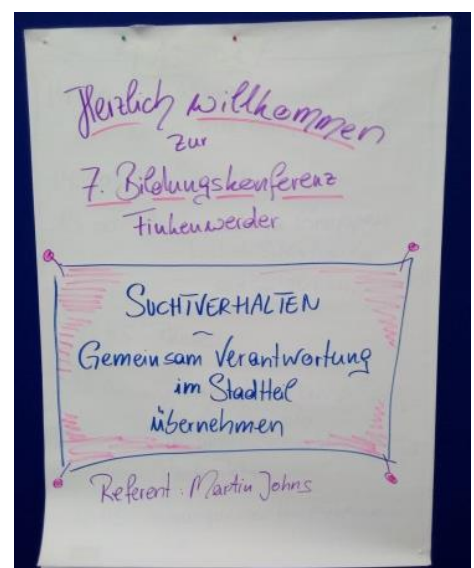 Herzlich willkommen
zur
7. Bildungskonferenz
Finkenwerder
SUCHTVERHALTEN
~
Gemeinsam Verantwortung
im Stadtteil
übernehmen
Referent: Martin Johns